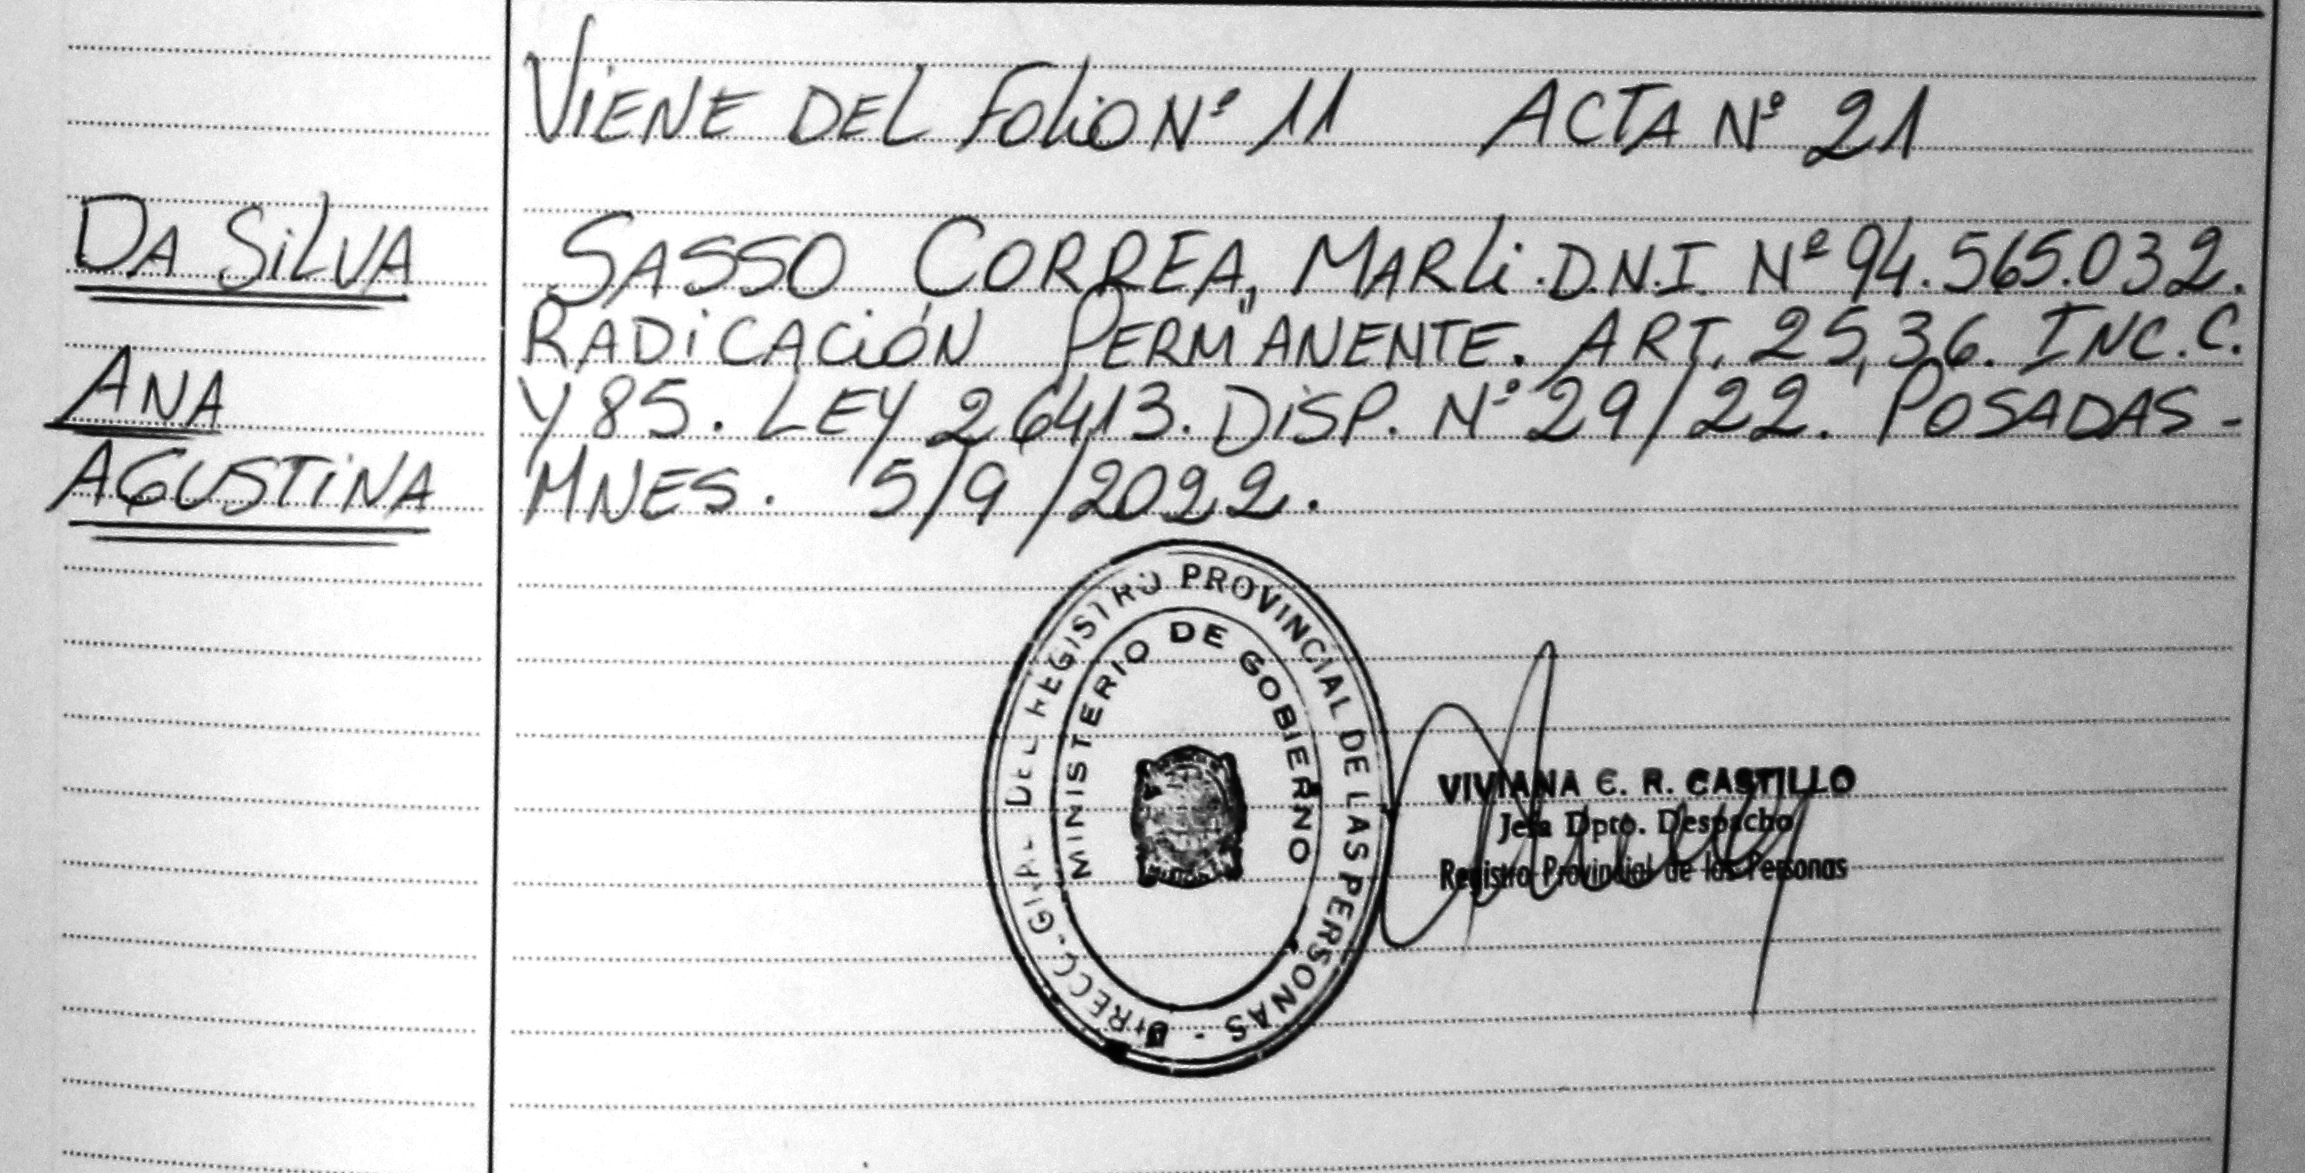 VIENE DEL FOLIO Nº 11 ACTA Nº 21
DA SILVA
ANA
AGUSTINA
SASSO CORREA, MARLI. D.N.I. Nº 94.565.032.
RADICACIÓN PERMANENTE. ART. 25,36. INC. C.
Y 85. LEY 26413. DISP. Nº 29/22. POSADAS -
MNES. 5/9/2022.
DIRECC. GRAL DEL REGISTRO PROVINCIAL DE LAS PERSONAS -
MINISTERIO DE GOBIERNO
VIVIANA E. R. CASTILLO
Jefa Dpto. Despacho
Registro Provincial de las Personas